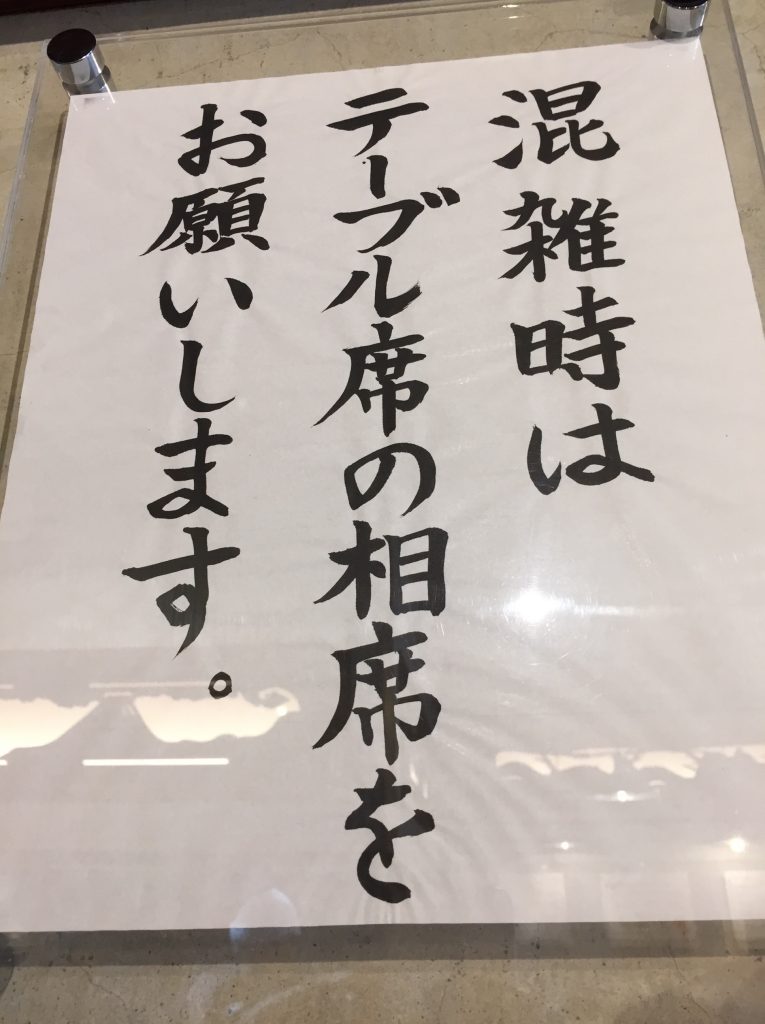 混雑時は
テーブル席の相席を
お願いします。